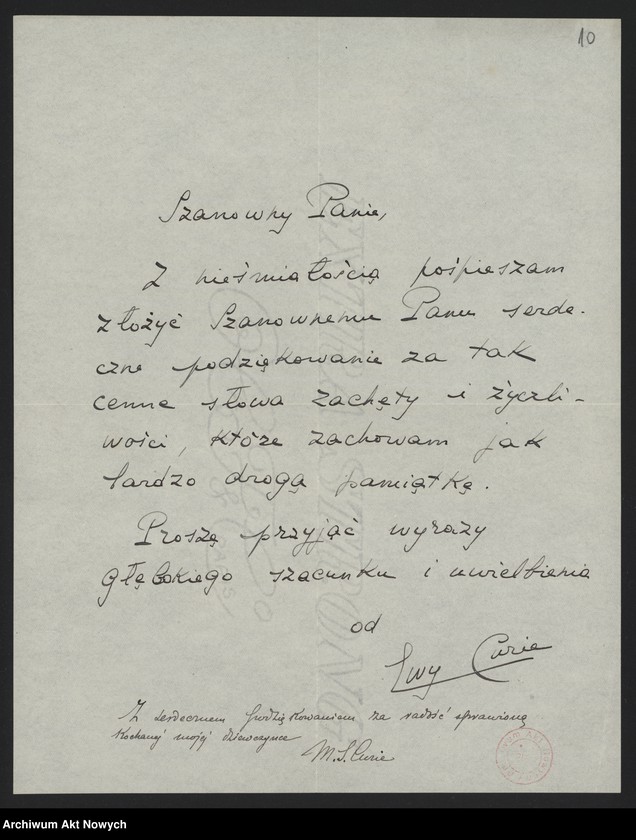 10
Szanowny Panie,
Z nieśmiałością pośpieszam
złożyć Szanownemu Panu serde-
czne podziękowanie za tak
cenne słowa zachęty i życzli-
wości, które zachowam jak
bardzo drogą pamiątkę.
Proszę przyjąć wyrazy
głębokiego szacunku i uwielbienia
od
Ewy Curie
Z serdecznem podziękowaniem za radość sprawioną
kochanej mojej dziewczynce
M. S. Curie
Archiwum Akt Nowych